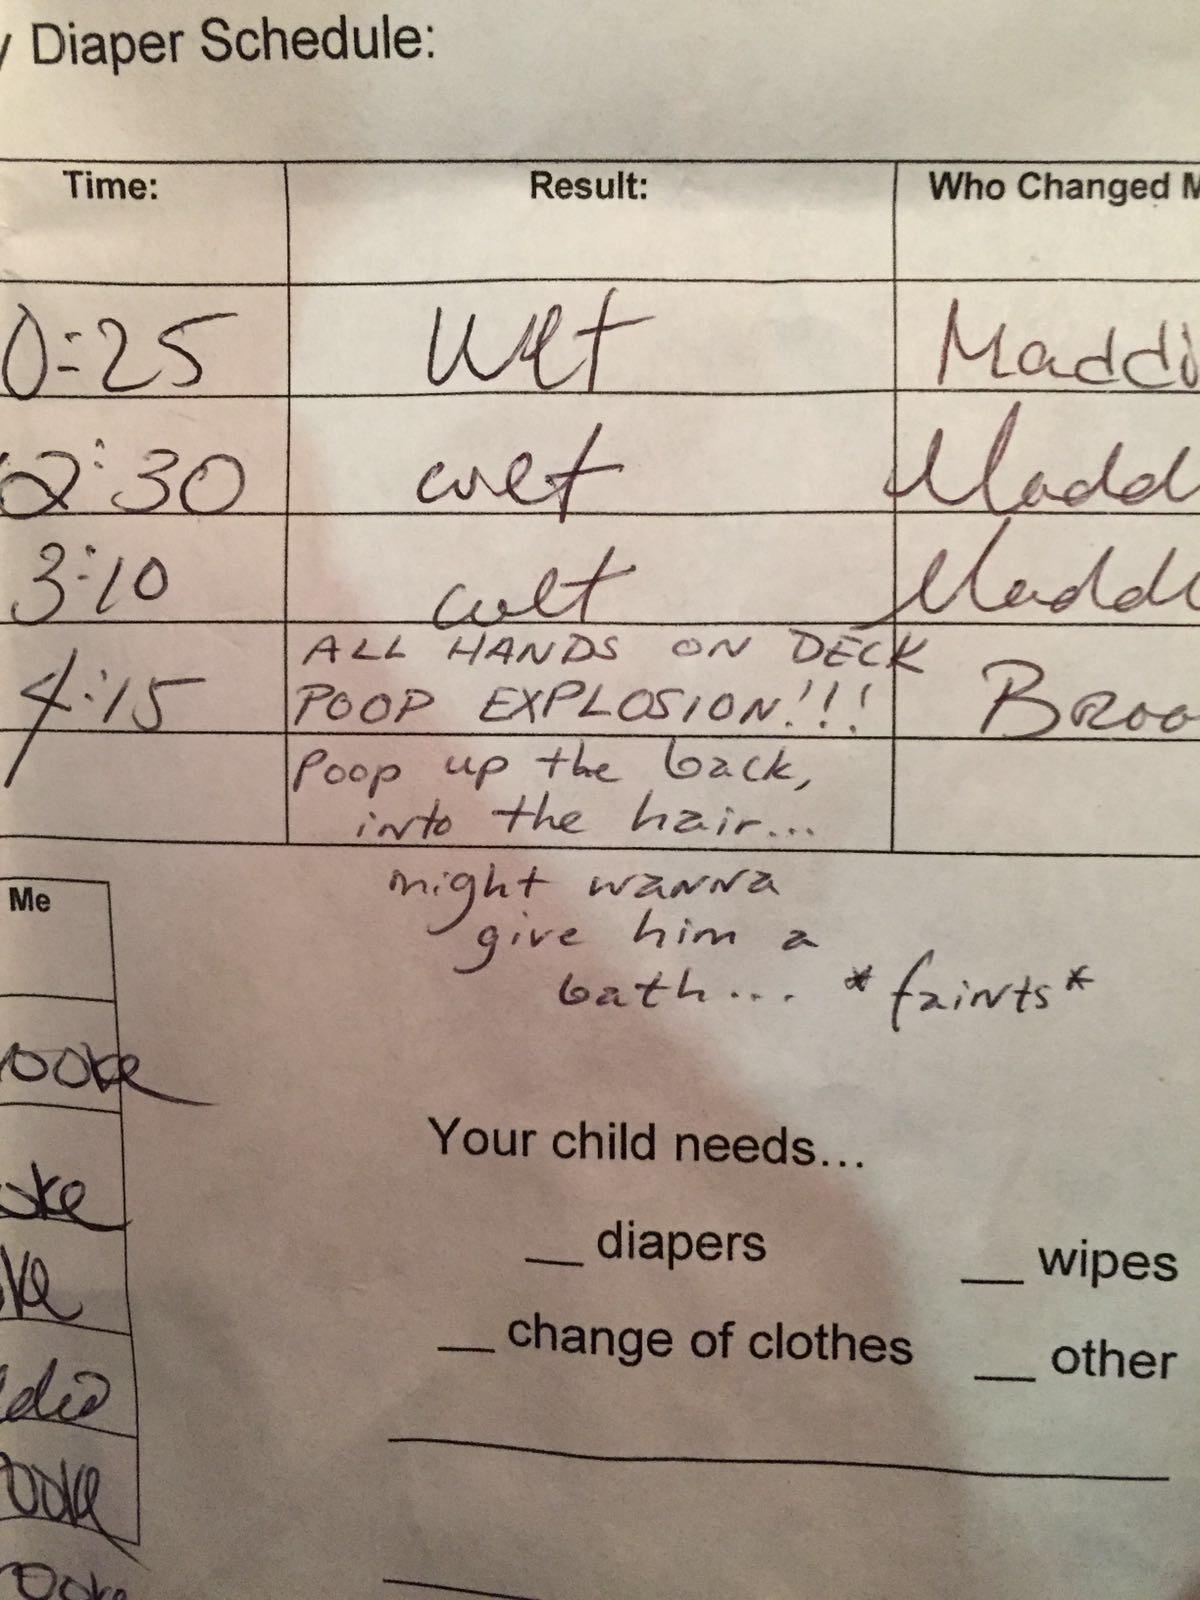 y Diaper Schedule:
Time: Result: Who Changed M
0:25 wet Maddi
2:30 wet Madd
3:10 wet Maddi
4:15 ALL HANDS ON DECK
POOP EXPLOSION!!! Broo
Poop up the back,
into the hair...
might wanna
give him a
bath... *faints*
Me
rooke
oke
ke
die
ooke
rooke
Your child needs...
__ diapers __ wipes
__ change of clothes __ other